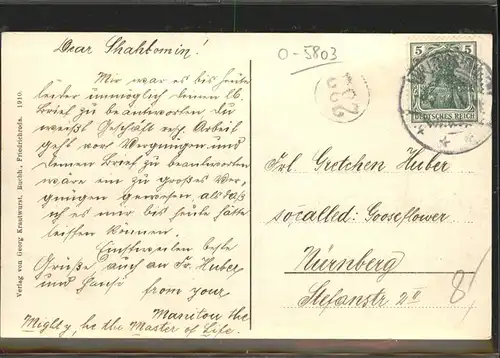 Dear Shahtomin!
Mir war es bis heute
leider unmöglich deinen lb.
Brief zu beantworten du
weißt Geschäft resp. Arbeit
geht vors Vergnügen und
deinen Brief zu beantworten
wäre ein zu großes Ver-
gnügen gewesen, als daß
ich es mir bis heute hätte
leisten können.
Einstweilen beste
Grüße auch an Fr. Huber
und from your
Manitou the
Mighty, he the Master of Life.
Verlag von Georg Krautwurst, Buchh., Friedrichroda. 1910.
0-5803
5 5
DEUTSCHES REICH
Frl. Gretchen Huber
socalled: Gooseflower
Nürnberg
Stefanstr 2 II
8/